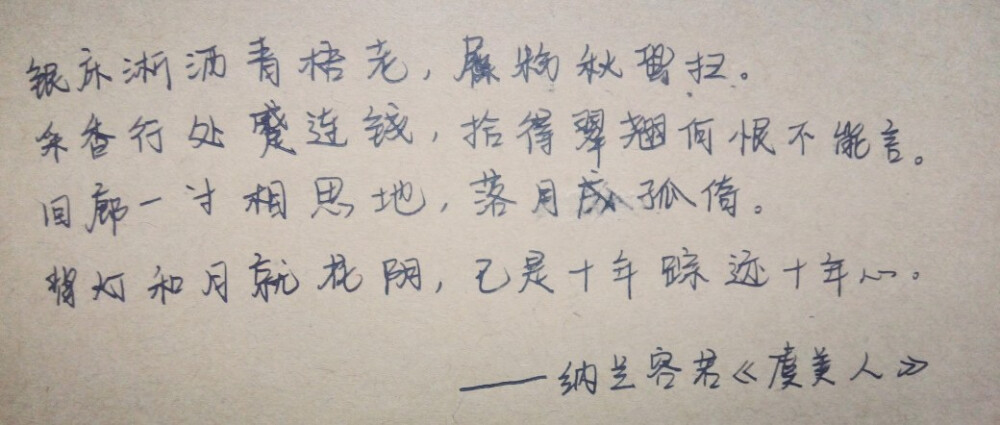 银床淅沥青梧老，屧粉秋蛩扫。
采香行处蹙连钱，拾得翠翘何恨不能言。
回廊一寸相思地，落月成孤倚。
背灯和月就花阴，已是十年踪迹十年心。
——纳兰容若《虞美人》